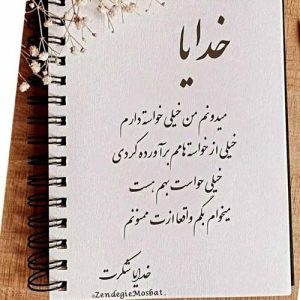 خدایا
میدونم من خیلی خواسته دارم
خیلی از خواسته هامم برآورده کردی
خیلی حواست بهم هست
میخوام بگم واقعا ازت ممنونم
خدایا شکرت
@ZendegieMosbat